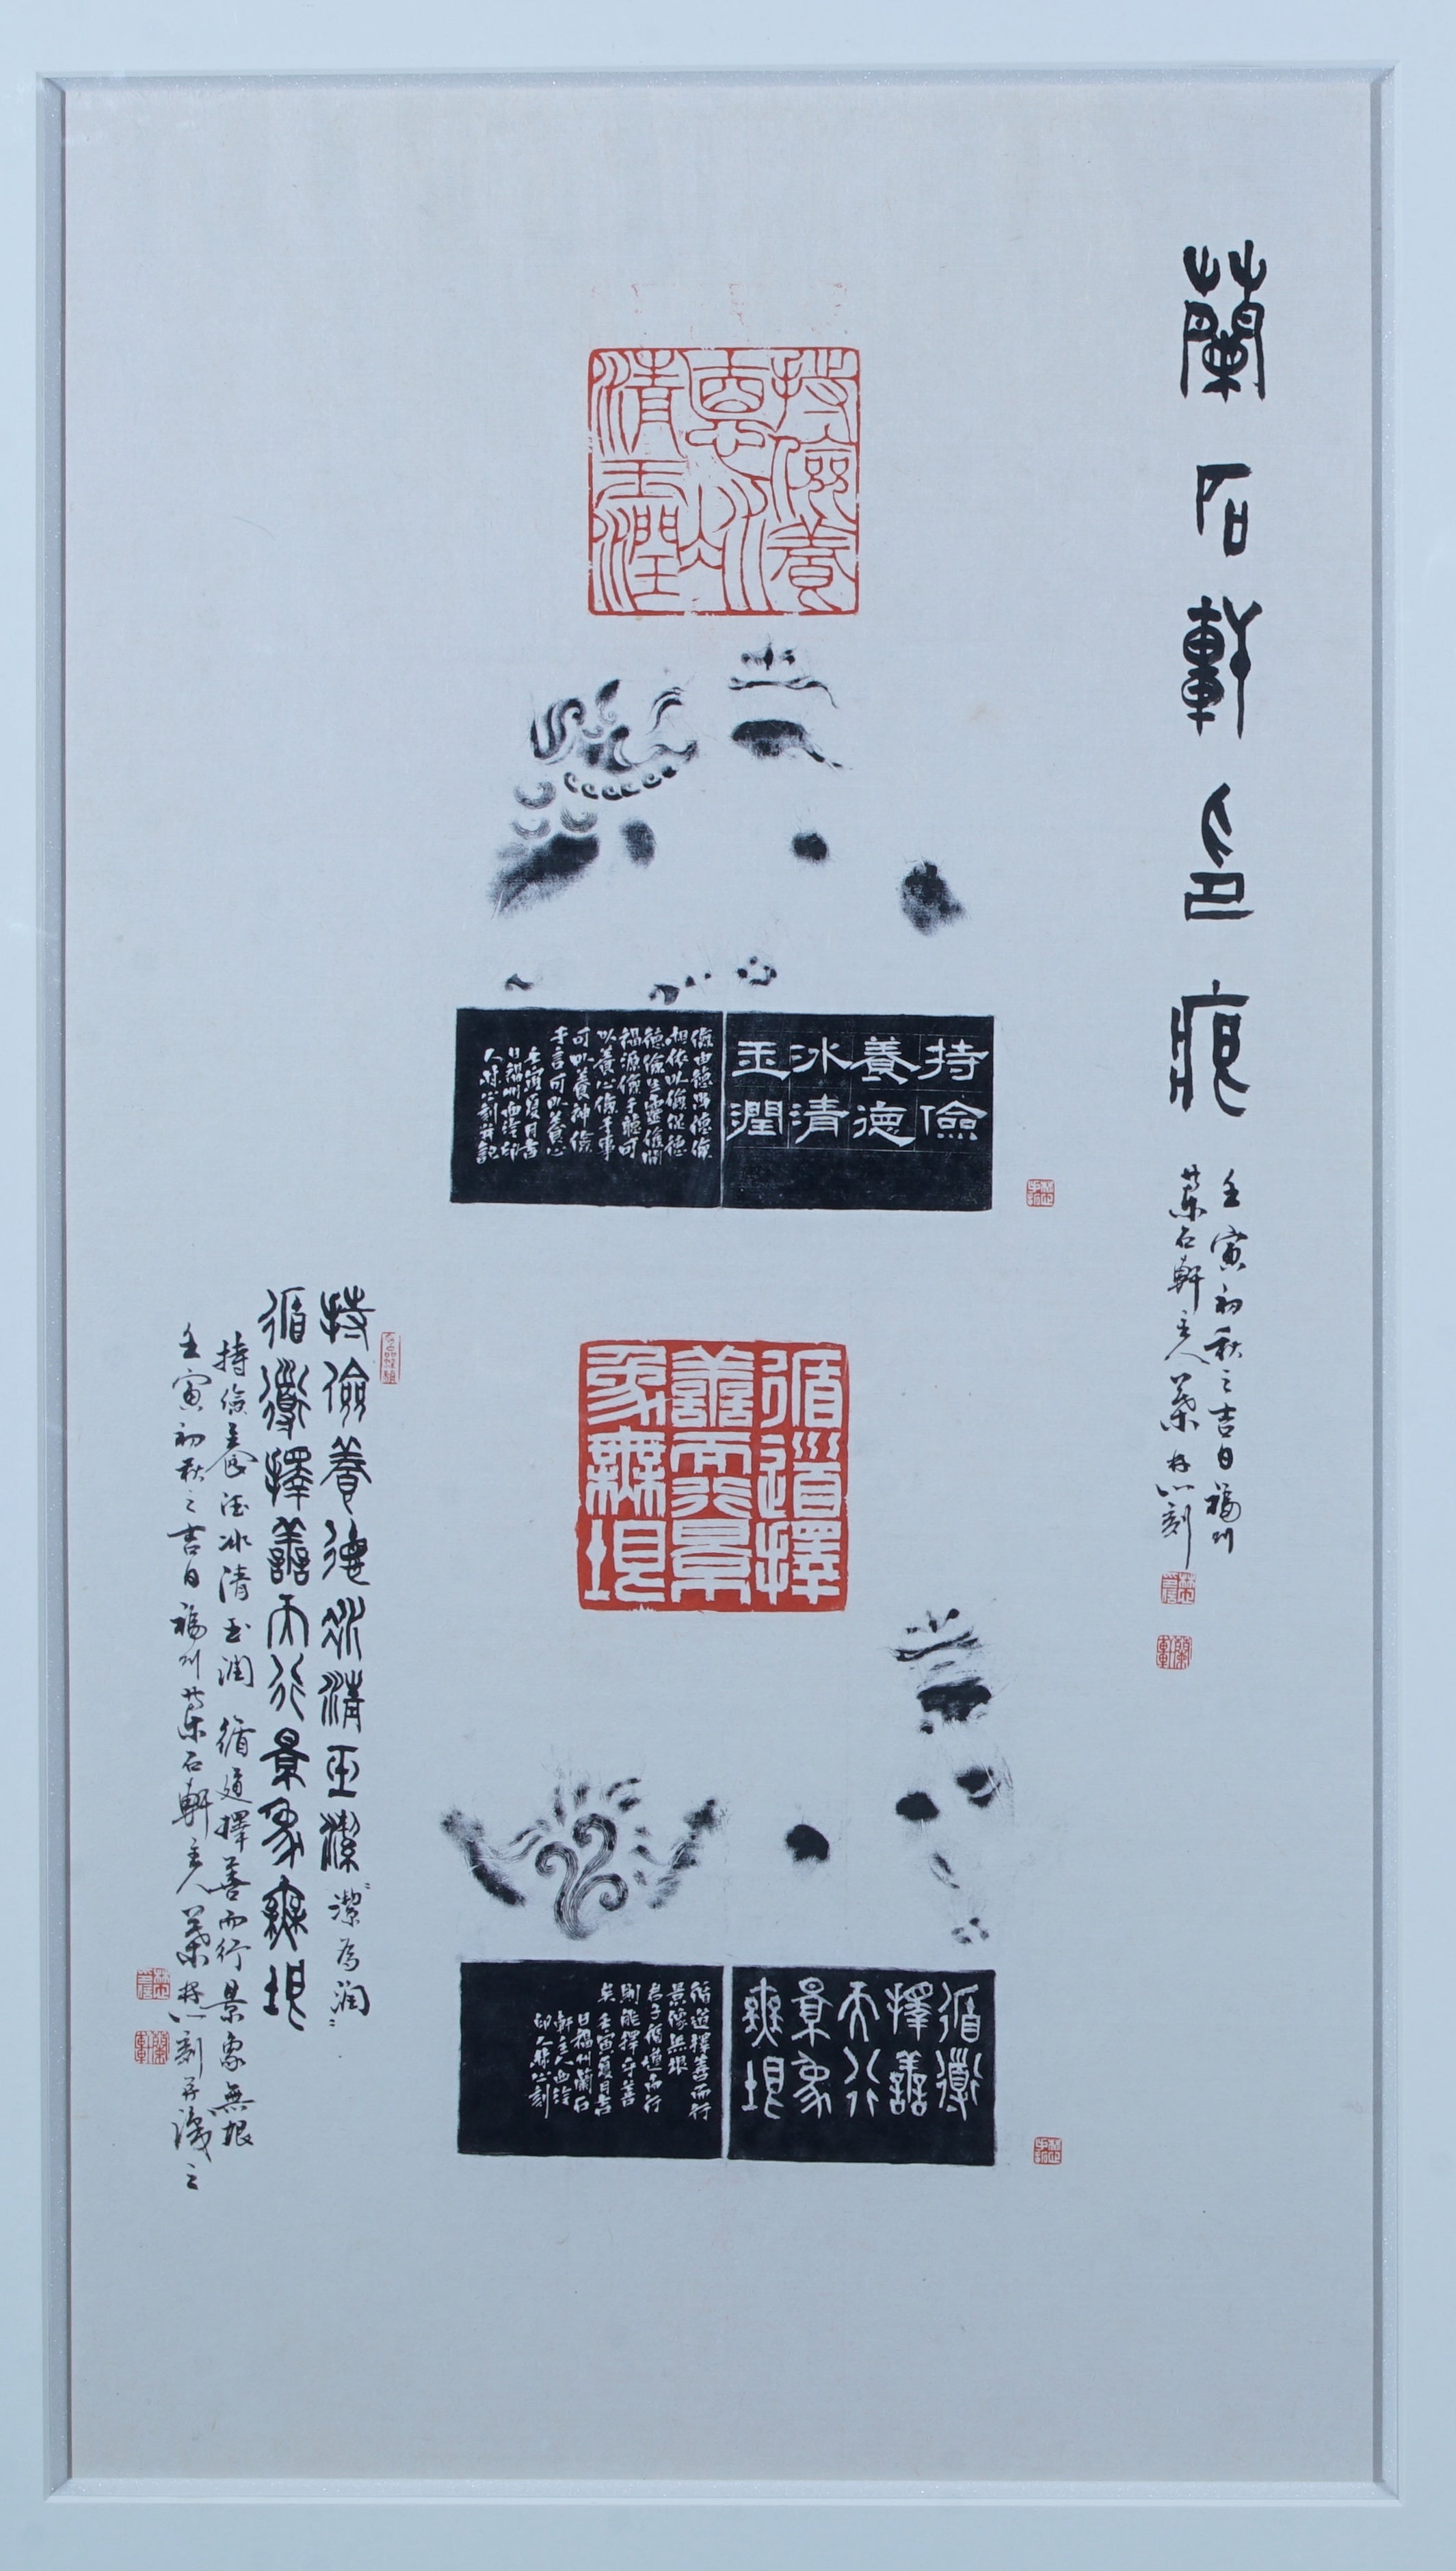 蘭石軒印痕
壬寅初秋之吉日福州
蘭石軒主人葉
刻
持儉養
悳冰
清玉潤
持儉
養德
冰清
玉潤
儉由德出德儉
相依以儉從德
德儉生靈儉開
福源儉于聽可
以養心儉于事
可以養神儉
于言可以養心
壬寅夏月吉
日福州西泠印
人
刻并記
循道擇
善而行景
象無垠
循道
擇善
而行
景象
無垠
循道擇善而行
景像無垠
君子循道而行
則能擇乎善
矣壬寅夏月吉
日福州蘭石
軒主人西泠
印人
刻
持儉養德冰清玉潔“潔為潤”
循道擇善而行景象無垠
持儉養德冰清玉潤 循道擇善而行景象無垠
壬寅初秋之吉日福州蘭石軒主人葉
刻并識之